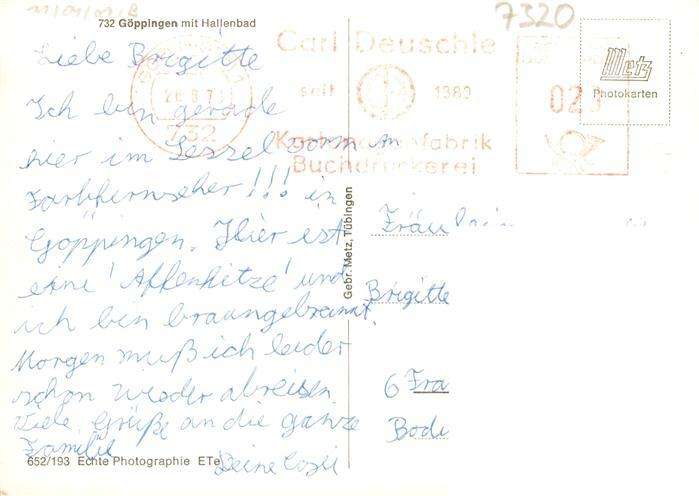 11/01/07/B
7320
732 Göppingen mit Hallenbad
Liebe Brigitte
Ich bin gerade
hier im Sessel vorm
Farbfernseher!!! in
Göppingen. Hier ist
eine 'Affenhitze' und
ich bin braungebrannt.
Morgen muß ich leider
schon wieder abreisen
Viele Grüße an die ganze
Familie
Deine
652/193 Echte Photographie ETe
Gebr. Metz, Tübingen
Carl Deuschle
seit 1389
Buchdruckerei
732
Metz
Photokarten
Fräulein
Brigitte
6 Fra
Bode